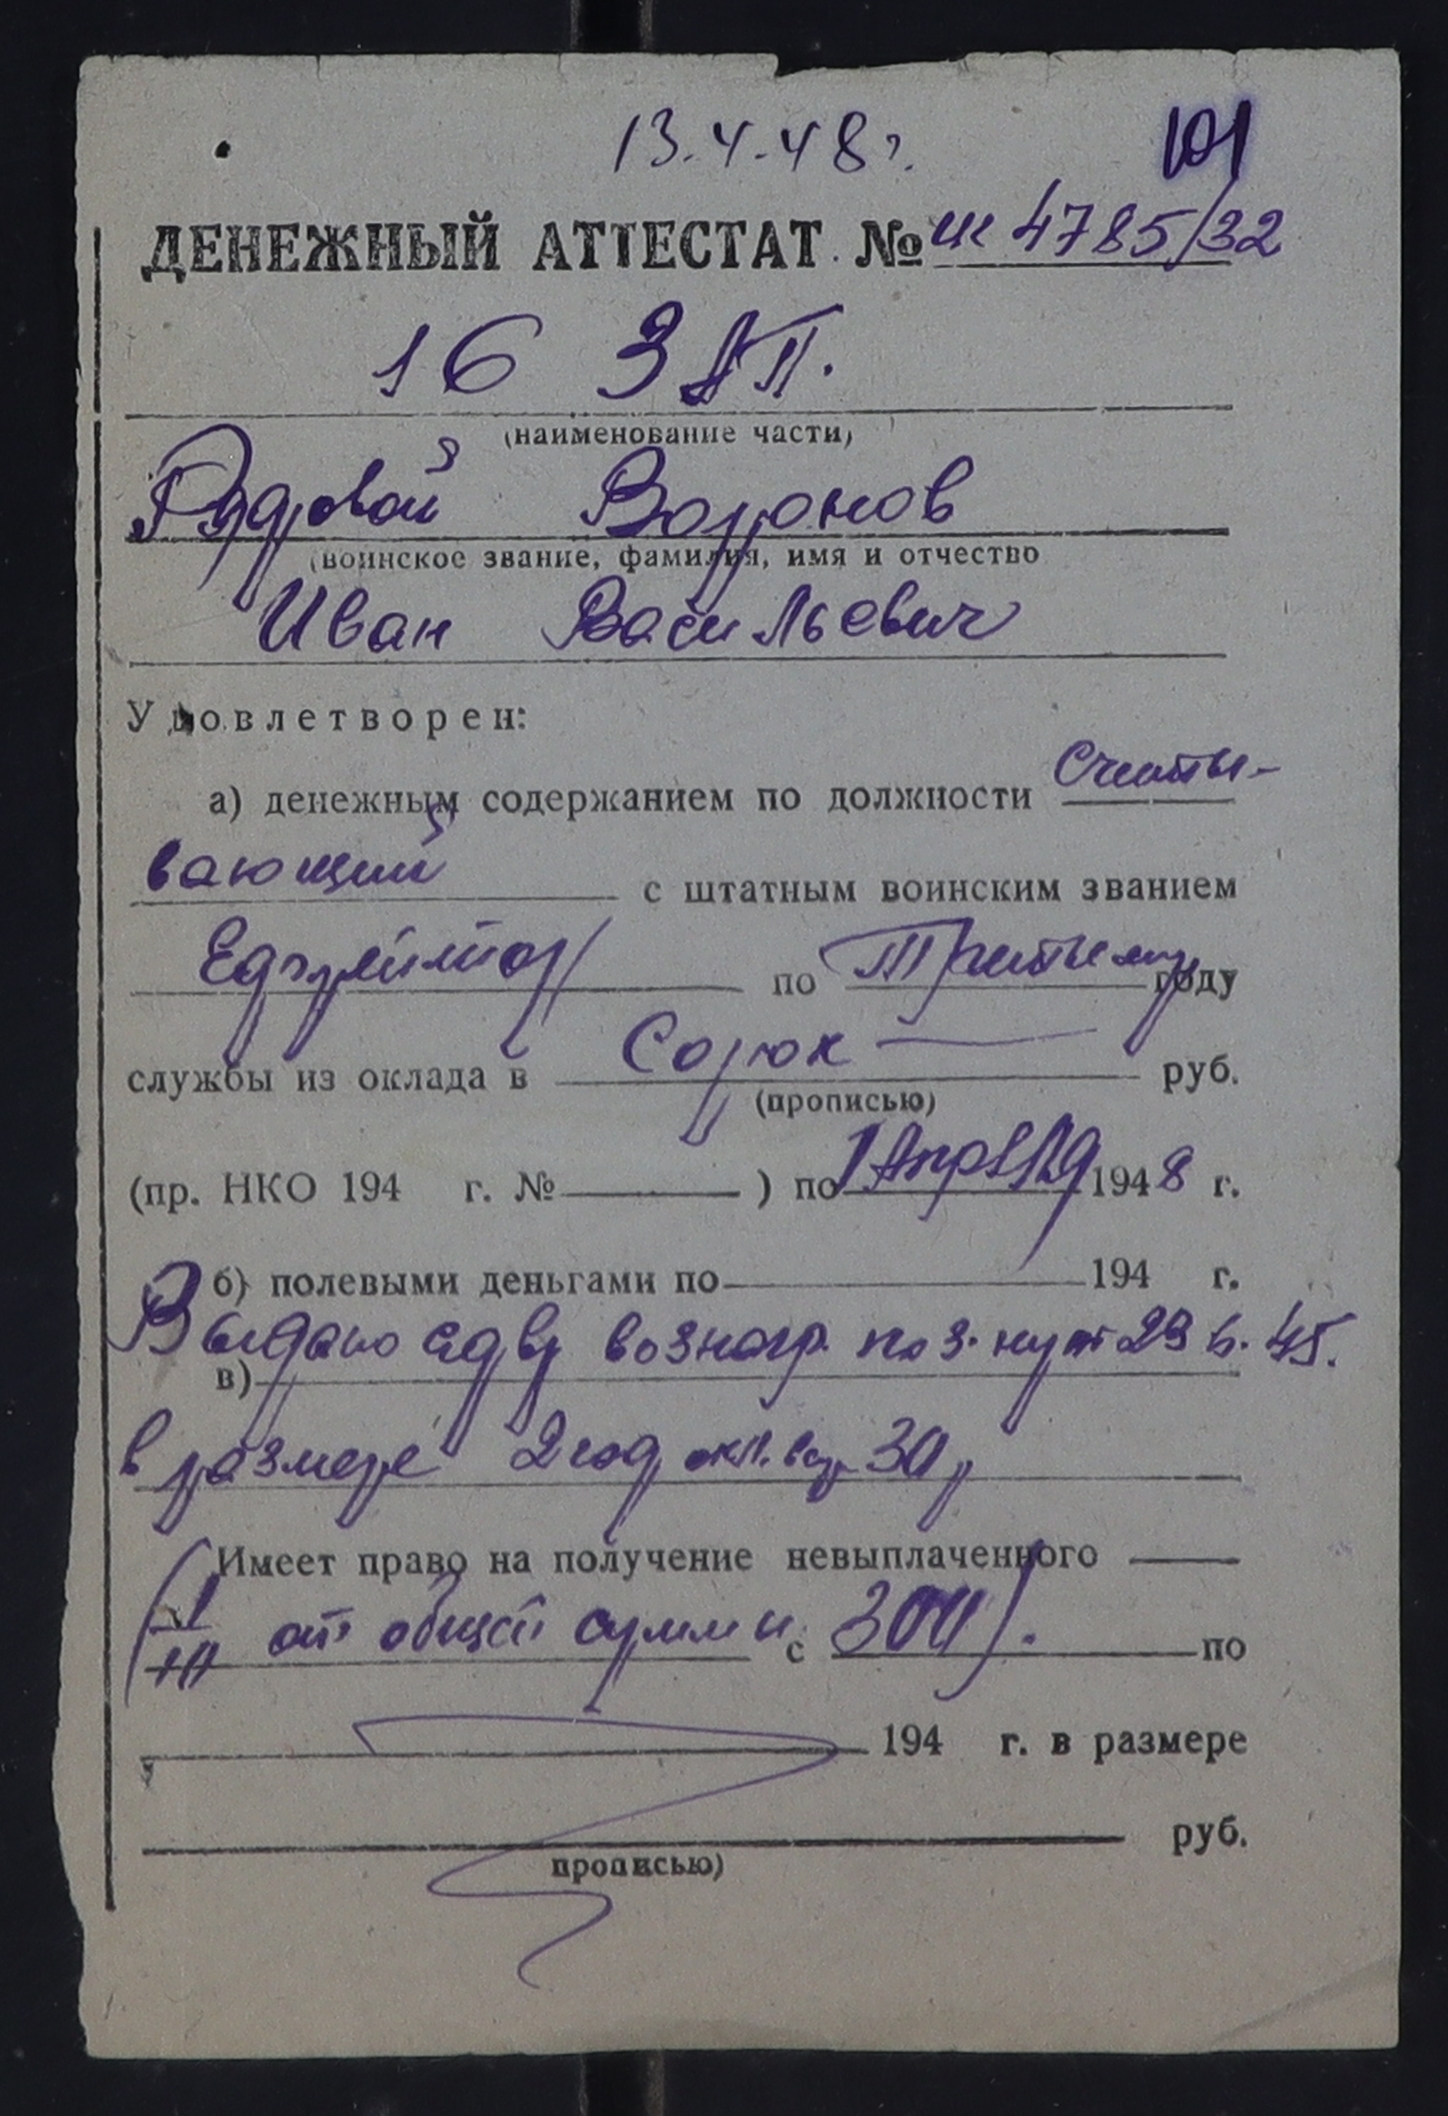 13.4.48 г.
101
ДЕНЕЖНЫЙ АТТЕСТАТ № ш 4785/32
16 ЗАП.
(наименование части)
Рядовой Воронов
(воинское звание, фамилия, имя и отчество
Иван Васильевич
Удовлетворен:
а) денежным содержанием по должности Считы-
вающий с штатным воинским званием
Ефрейтор по Третьему году
службы из оклада в Сорок руб.
(прописью)
(пр. НКО 194 г. № ) по 1 Апреля 1948 г.
б) полевыми деньгами по 194 г.
Выдано един вознагр. по з-ну от 23 6. 45.
в)
в размере 2 год окл. 30 р
Имеет право на получение невыплаченного
от общей суммы 300). с по
194 г. в размере
руб.
прописью)